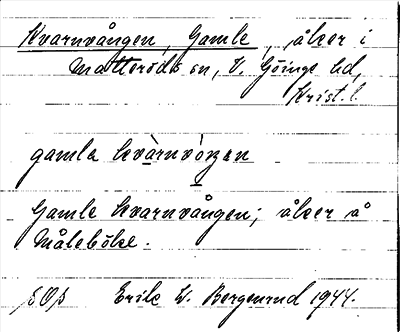 Kvarnvången, Gamle, åker i
Matteröds sn, V. Göinge hd,
Krist. l.
gamla kvàrnvóŋen
Gamle Kvarnvången; åker å
Måleböke.
Erik W. Bergenrud 1944.